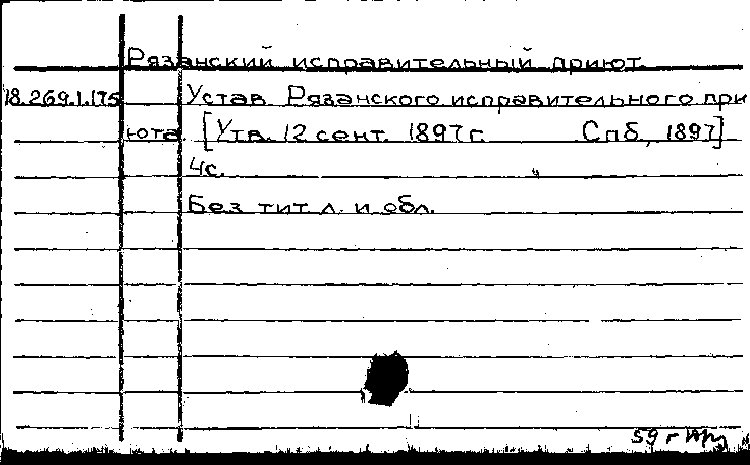 Рязанский исправительный приют.
18.269.1.175 Устав Рязанского исправительного при
юта. [Утв. 12 сент. 1897 г. Спб, 1897]
4с.
Без тит л. и обл.
59 г